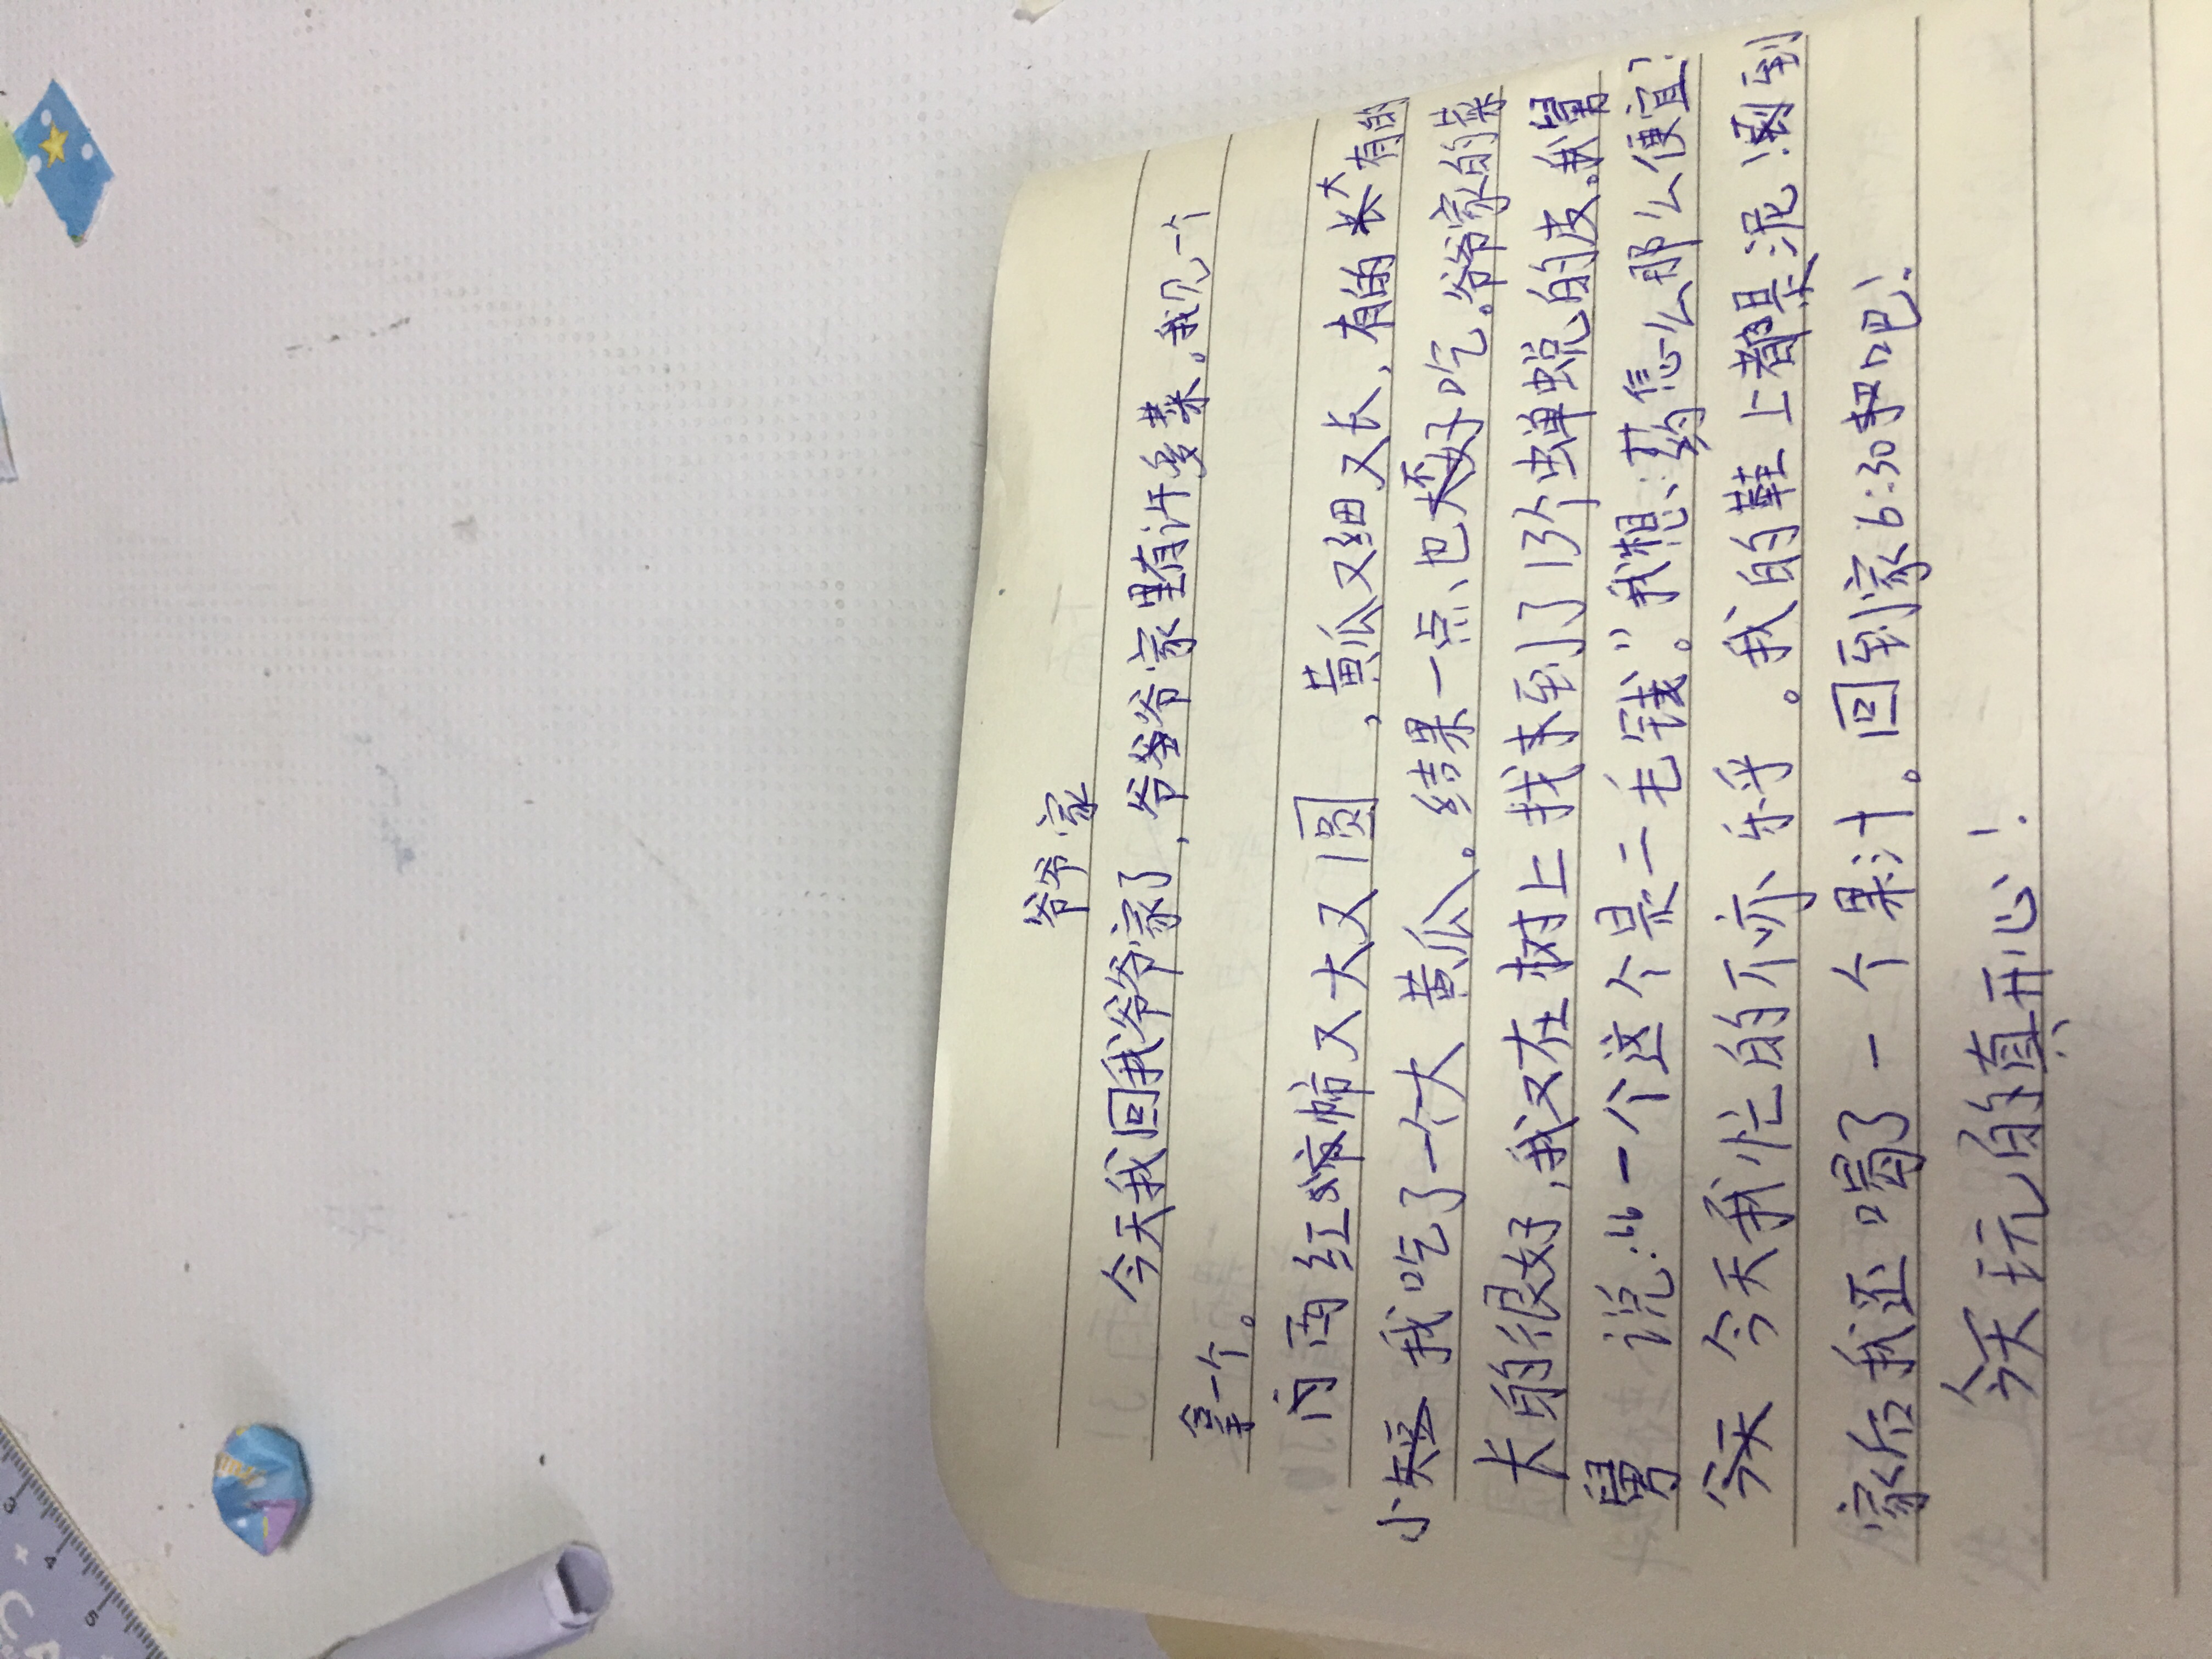 爷爷家
今天我回我爷爷家了，爷爷爷家里有许多菜。我见一个
拿一个。
西红柿又大又圆，黄瓜又细又长，有的大有的
小 我吃了一个大黄瓜。结果一点也不好吃。爷爷家的菜
大的很好，我又在树上找到了13个蝉蜕的皮。我舅
舅 说：“一个这个是二毛钱”。我想：药怎么那么便宜？
今天 今天我忙的不亦乐乎。我的鞋上都是泥！到
家后我还喝了一个果汁。回到家6:30了吧！
今天玩的真开心！
3 4 5